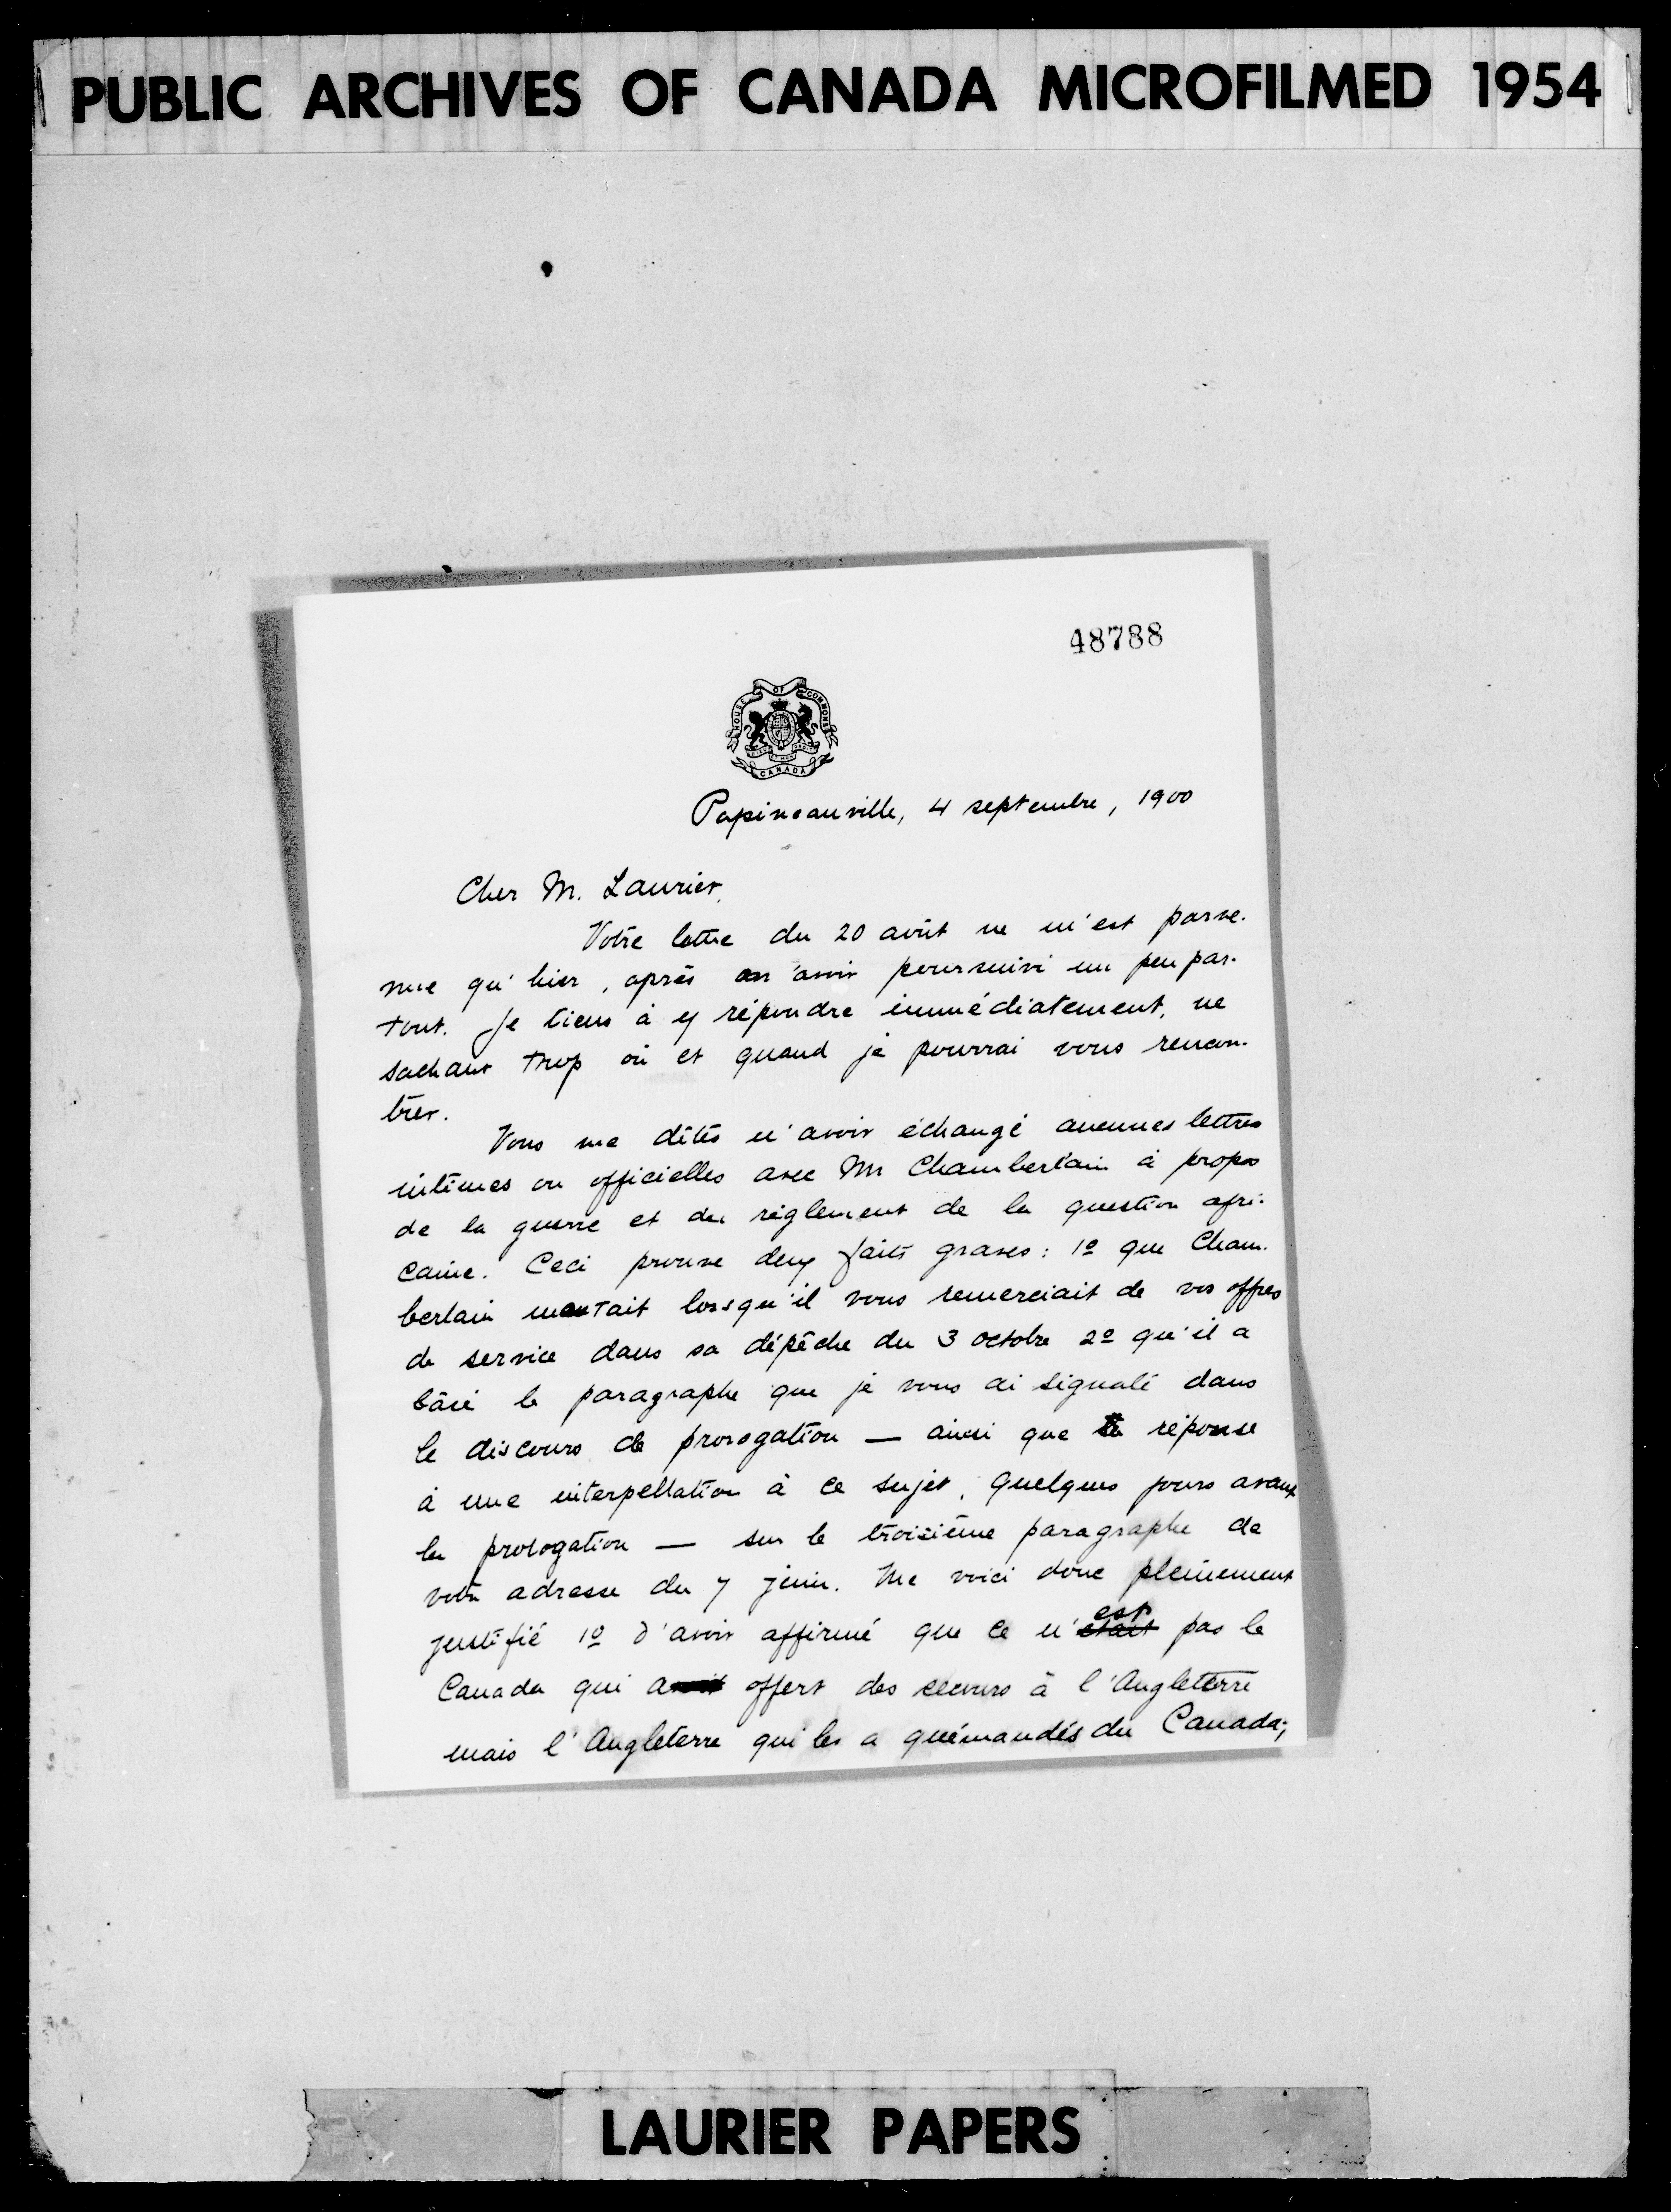 PUBLIC ARCHIVES OF CANADA MICROFILMED 1954
48788
HOUSE OF COMMONS
CANADA
Papineauville, 4 septembre, 1900
Cher M. Laurier,
Votre lettre du 20 août ne m'est parve-
nue qu'hier, après m'avoir poursuivi un peu par-
tout. Je tiens à y répondre immédiatement, ne
sachant trop où et quand je pourrai vous rencon-
trer.
Vous me dites n'avoir échangé aucunes lettres
intimes ou officielles avec Mr Chamberlain à propos
de la guerre et du règlement de la question afri-
caine. Ceci prouve deux faits graves: 1º que Cham-
berlain mentait lorsqu'il vous remerciait de vos offres
de service dans sa dépêche du 3 octobre 2º qu'il a
bâsé le paragraphe que je vous ai signalé dans
le discours de prorogation — ainsi que sa réponse
à une interpellation à ce sujet, quelques jours avant
la prorogation — sur le troisième paragraphe de
votre adresse du 7 juin. Me voici donc pleinement
justifié 1º d'avoir affirmé que ce n'était est pas le
Canada qui a offert des secours à l'Angleterre
mais l'Angleterre qui les a quémandés du Canada;
LAURIER PAPERS